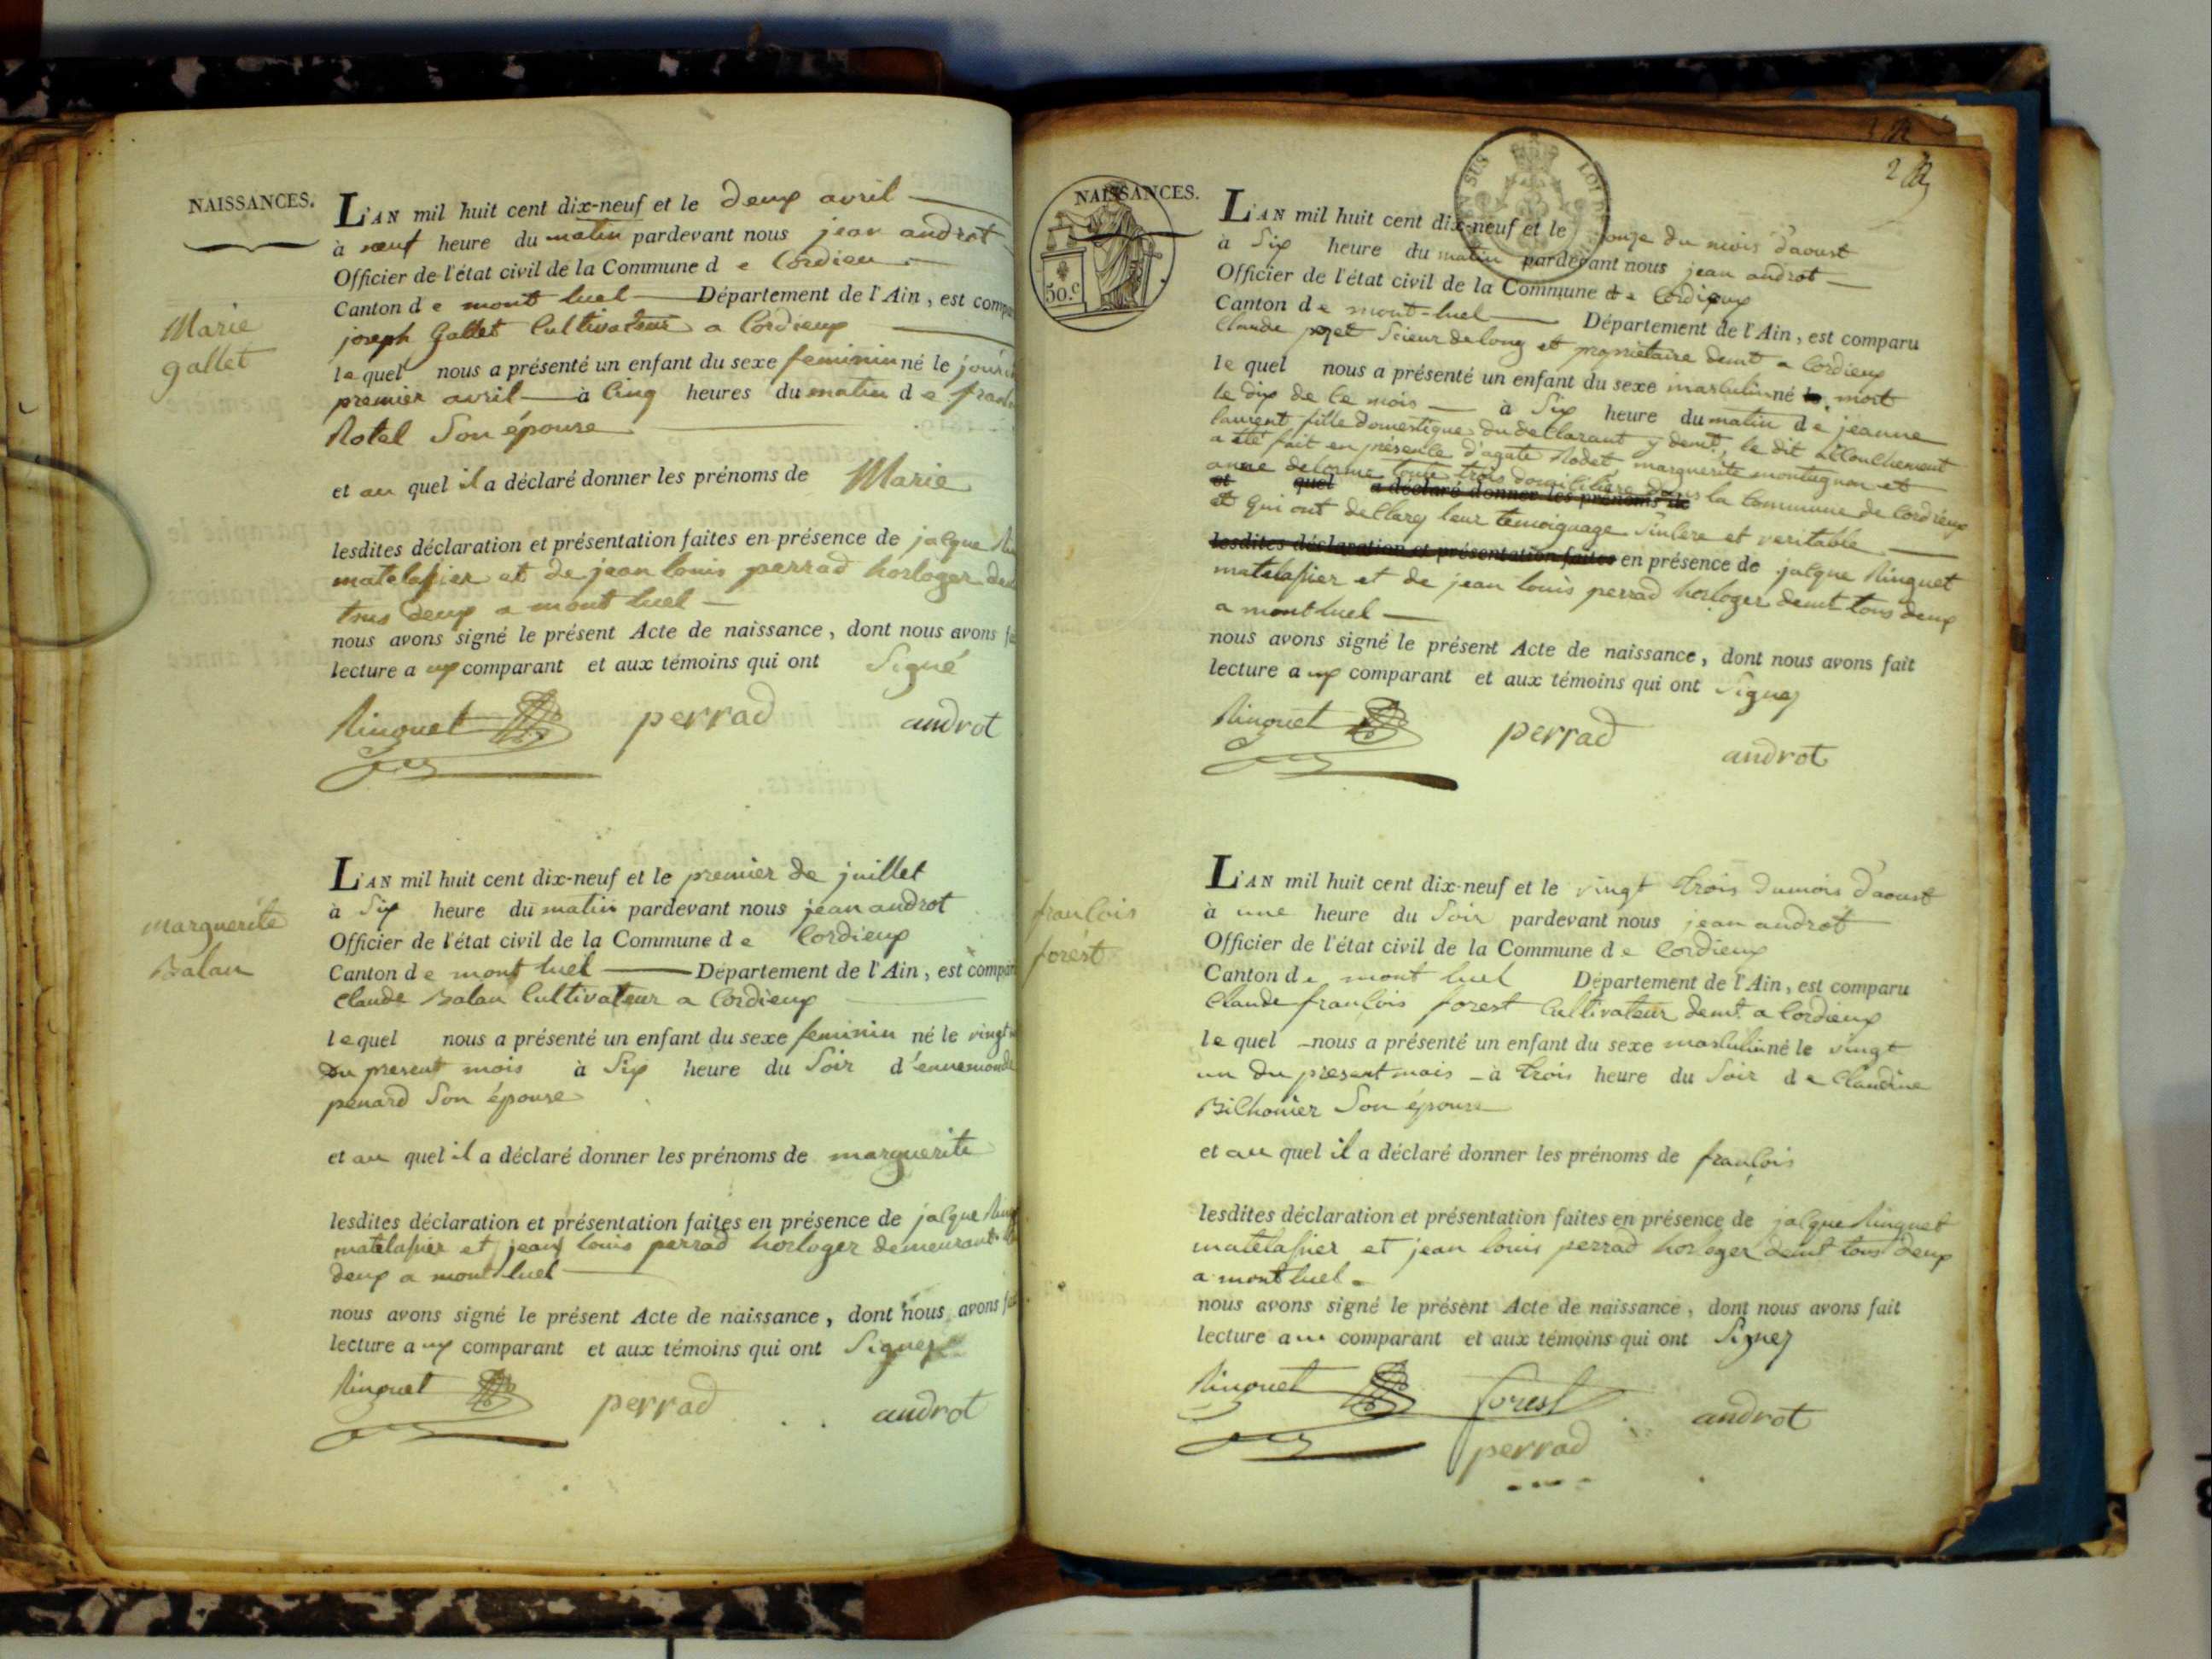 NAISSANCES.
L'AN mil huit cent dix-neuf et le deux avril
à neuf heure du matin pardevant nous jean androt
Officier de l'état civil de la Commune de Cordieu
Canton de mont luel Département de l'Ain, est
Marie
gallet
joseph Gallet Cultivateur a Cordieux
lequel nous a présenté un enfant du sexe feminin né le
premier avril à Cinq heures du matin de
Rotel Son épouse
et au quel il a déclaré donner les prénoms de Marie
lesdites déclaration et présentation faites en présence de jacque
matelassier et de jean louis perrad horloger
tous deux a mont luel
nous avons signé le présent Acte de naissance, dont nous avons
lecture aux comparant et aux témoins qui ont Signé
Rinquet perrad androt
L'AN mil huit cent dix-neuf et le premier de juillet
à Six heure du matin pardevant nous jean androt
marguerite
Balan
Officier de l'état civil de la Commune de Cordieux
Canton de mont luel Département de l'Ain, est
Claude Balan Cultivateur a Cordieux
lequel nous a présenté un enfant du sexe feminin né le
Du present mois à Six heure du Soir d'ennemonde
penard Son épouse
et au quel il a déclaré donner les prénoms de marguerite
lesdites déclaration et présentation faites en présence de jacque
matelassier et jean louis perrad horloger demeurant
deux a mont luel
nous avons signé le présent Acte de naissance, dont nous avons
lecture aux comparant et aux témoins qui ont Signez
Rinquet perrad androt
NAISSANCES.
50.c
L'AN mil huit cent dix-neuf et le onze du mois d'aoust
à Six heure du matin pardevant nous jean androt
Officier de l'état civil de la Commune de Cordieux
Canton de mont-luel Département de l'Ain, est comparu
Claude Scieur de long et propriétaire demt a Cordieux
lequel nous a présenté un enfant du sexe masculin né mort
le dix de ce mois à Six heure du matin de jeanne
laurent fille domestique du declarant y demt, le dit accouchement
a été fait en présence d'agate Rodet, marguerite montagnon et
anne delorme toute trois domiciliée dans la Commune de Cordieux
et quel a déclaré donner les prénoms de
et qui ont declarez leur temoignage Sincere et veritable
lesdites déclaration et présentation faites en présence de jacque Rinquet
matelassier et de jean louis perrad horloger demt tous deux
a mont luel
nous avons signé le présent Acte de naissance, dont nous avons fait
lecture aux comparant et aux témoins qui ont Signez
Rinquet perrad androt
L'AN mil huit cent dix-neuf et le vingt trois du mois d'aoust
à une heure du Soir pardevant nous jean androt
francois
forest
Officier de l'état civil de la Commune de Cordieux
Canton de mont luel Département de l'Ain, est comparu
Claude francois forest Cultivateur demt a Cordieux
lequel nous a présenté un enfant du sexe masculin né le vingt
un du present mois à trois heure du Soir de Claudine
Bichonier Son épouse
et au quel il a déclaré donner les prénoms de françois
lesdites déclaration et présentation faites en présence de jacque Rinquet
matelassier et jean louis perrad horloger demt tous deux
a mont luel
nous avons signé le présent Acte de naissance, dont nous avons fait
lecture au comparant et aux témoins qui ont Signez
Rinquet forest androt
perrad